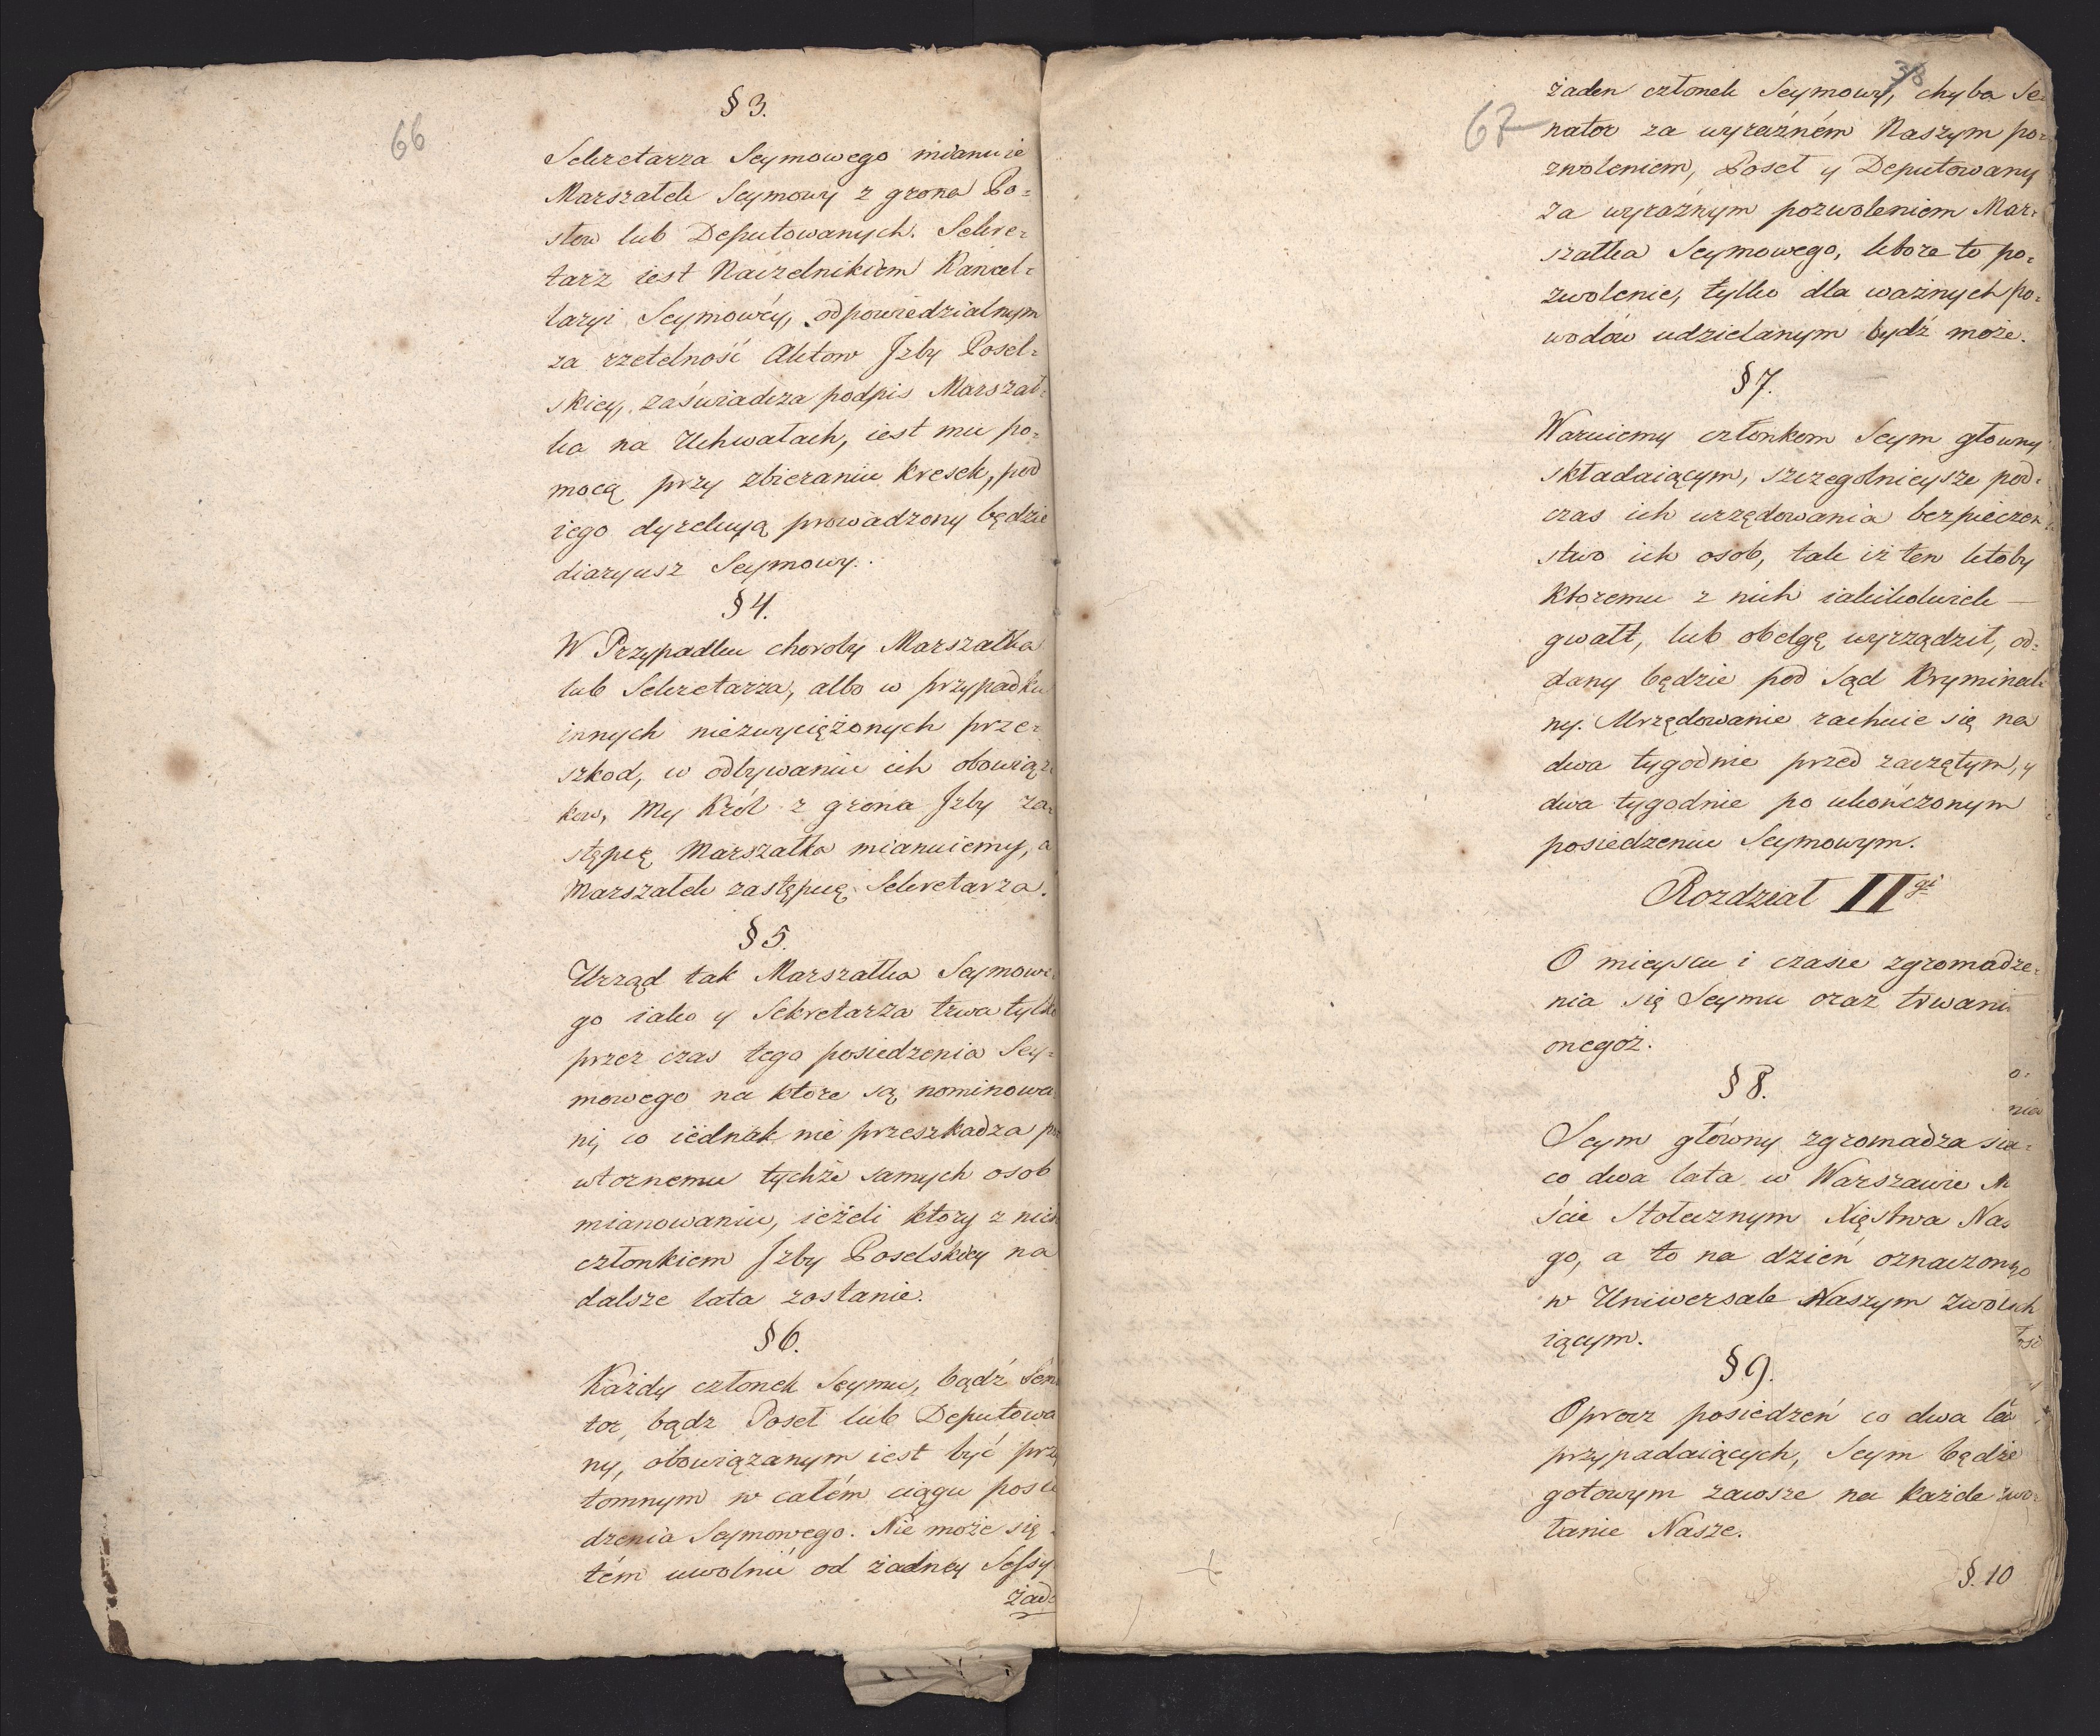 66
§ 3.
Sekretarza Seymowego mianuie
Marszałek Seymowy z grona Po=
słow lub Deputowanych. Sekre=
tarz iest Naczelnikiem Kancel=
laryi Seymowéy, odpowiedzialnym
za rzetelność Aktow Jzby Posel=
skiey, zaświadcza podpis Marszał=
ka na Uchwałach, iest mu po=
mocą przy zbieraniu kresek, pod
iego dyrekcyą prowadzony będzie
diaryusz Seymowy.
§ 4.
W Przypadku choroby Marszałka
lub Sekretarza, albo w przypadku
innych niezwyciężonych prze=
szkod, w odbywaniu ich obowiąz
kow, My Król z grona Jzby za=
stępcę Marszałka mianuiemy, a
Marszałek zastępcę Sekretarza.
§ 5.
Urząd tak Marszałka Seymowe
go iako y Sekretarza trwa tylko
przez czas tego posiedzenia Sey=
mowego na ktore są nominowa
ni, co iednak nie przeszkadza po
wtornemu tychże samych osob
mianowaniu, ieżeli ktory z nich
członkiem Jzby Poselskiey na
dalsze lata zostanie.
§ 6.
Każdy członek Seymu, bądź Sena
tor, bądz Poseł lub Deputowa
ny, obowiązanym iest być przy
tomnym w całém ciągu posie
dzenia Seymowego. Nie może się
tém uwolnić od żadney Sessyi
żad=
38
67
żaden członek Seymowy, chyba Se=
nator za wyraźném Naszym po=
zwoleniem, Poseł y Deputowany
za wyraźnym pozwoleniem Mar=
szałka Seymowego, ktore to po=
zwolenie, tylko dla ważnych po=
wodów udzielanym bydź może.
§ 7.
Waruiemy członkom Seym głowny
składaiącym, szczegolnieysze pod=
czas ich urzędowania bezpieczeń
stwo ich osob, tak iż ten ktoby
ktoremu z nich iakikolwiek —
gwałt, lub obelgę wyrządził, od=
dany będzie pod Sąd Kryminal=
ny. Urzędowanie rachuie się na
dwa tygodnie przed zaczętym, y
dwa tygodnie po ukończonym
posiedzeniu Seymowym.
Rozdział II gi
O mieyscu i czasie zgromadze=
nia się Seymu oraz trwani
onegoż.
§ 8.
Seym główny zgromadza się
co dwa lata w Warszawie M
ście Stołecznym Xięstwa Nas
go, a to na dzień oznaczony
w Uniwersale Naszym zwołu
iącym.
§ 9.
Oprocz posiedzeń co dwa lá
przypadaiących, Seym będzie
gotowym zawsze na każde zwo=
łanie Nasze.
§. 10